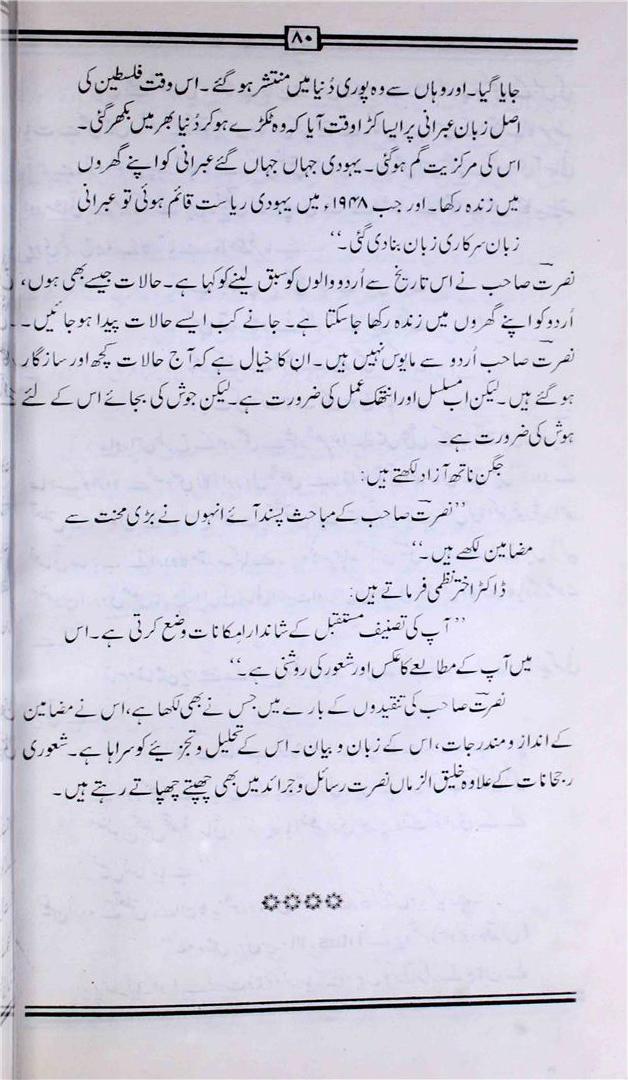 ۸۰
جایا گیا۔ اور وہاں سے وہ پوری دُنیا میں منتشر ہو گئے۔ اس وقت فلسطین کی
اصل زبان عبرانی پر ایسا کڑا وقت آیا کہ وہ ٹکڑے ہو کر دُنیا بھر میں بکھر گئی۔
اس کی مرکزیت گم ہو گئی۔ یہودی جہاں جہاں گئے عبرانی کو اپنے گھروں
میں زندہ رکھا۔ اور جب ۱۹۴۸ء میں یہودی ریاست قائم ہوئی تو عبرانی
زبان سرکاری زبان بنا دی گئی۔‘‘
نصرتؔ صاحب نے اس تاریخ سے اُردو والوں کو سبق لینے کو کہا ہے۔ حالات جیسے بھی ہوں،
اُردو کو اپنے گھروں میں زندہ رکھا جا سکتا ہے۔ جانے کب ایسے حالات پیدا ہو جائیں۔
نصرتؔ صاحب اُردو سے مایوس نہیں ہیں۔ ان کا خیال ہے کہ آج حالات کچھ اور سازگار
ہو گئے ہیں۔ لیکن اب مسلسل اور انتھک عمل کی ضرورت ہے۔ لیکن جوش کی بجائے اس کے لئے
ہوش کی ضرورت ہے۔
جگن ناتھ آزاد لکھتے ہیں:
’’نصرتؔ صاحب کے مباحث پسند آئے انہوں نے بڑی محنت سے
مضامین لکھے ہیں۔‘‘
ڈاکٹر اختر نظمی فرماتے ہیں:
’’آپ کی تصنیف مستقبل کے شاندار اِمکانات وضع کرتی ہے۔ اس
میں آپ کے مطالعے کا عکس اور شعور کی روشنی ہے۔‘‘
نصرتؔ صاحب کی تنقیدوں کے بارے میں جس نے بھی لکھا ہے، اس نے مضامین
کے انداز و مندرجات، اس کے زبان و بیان۔ اس کے تحلیل و تجزیئے کو سراہا ہے۔ شعوری
رجحانات کے علاوہ خلیق الزماں نصرت رسائل و جرائد میں بھی چھپتے چھپاتے رہتے ہیں۔